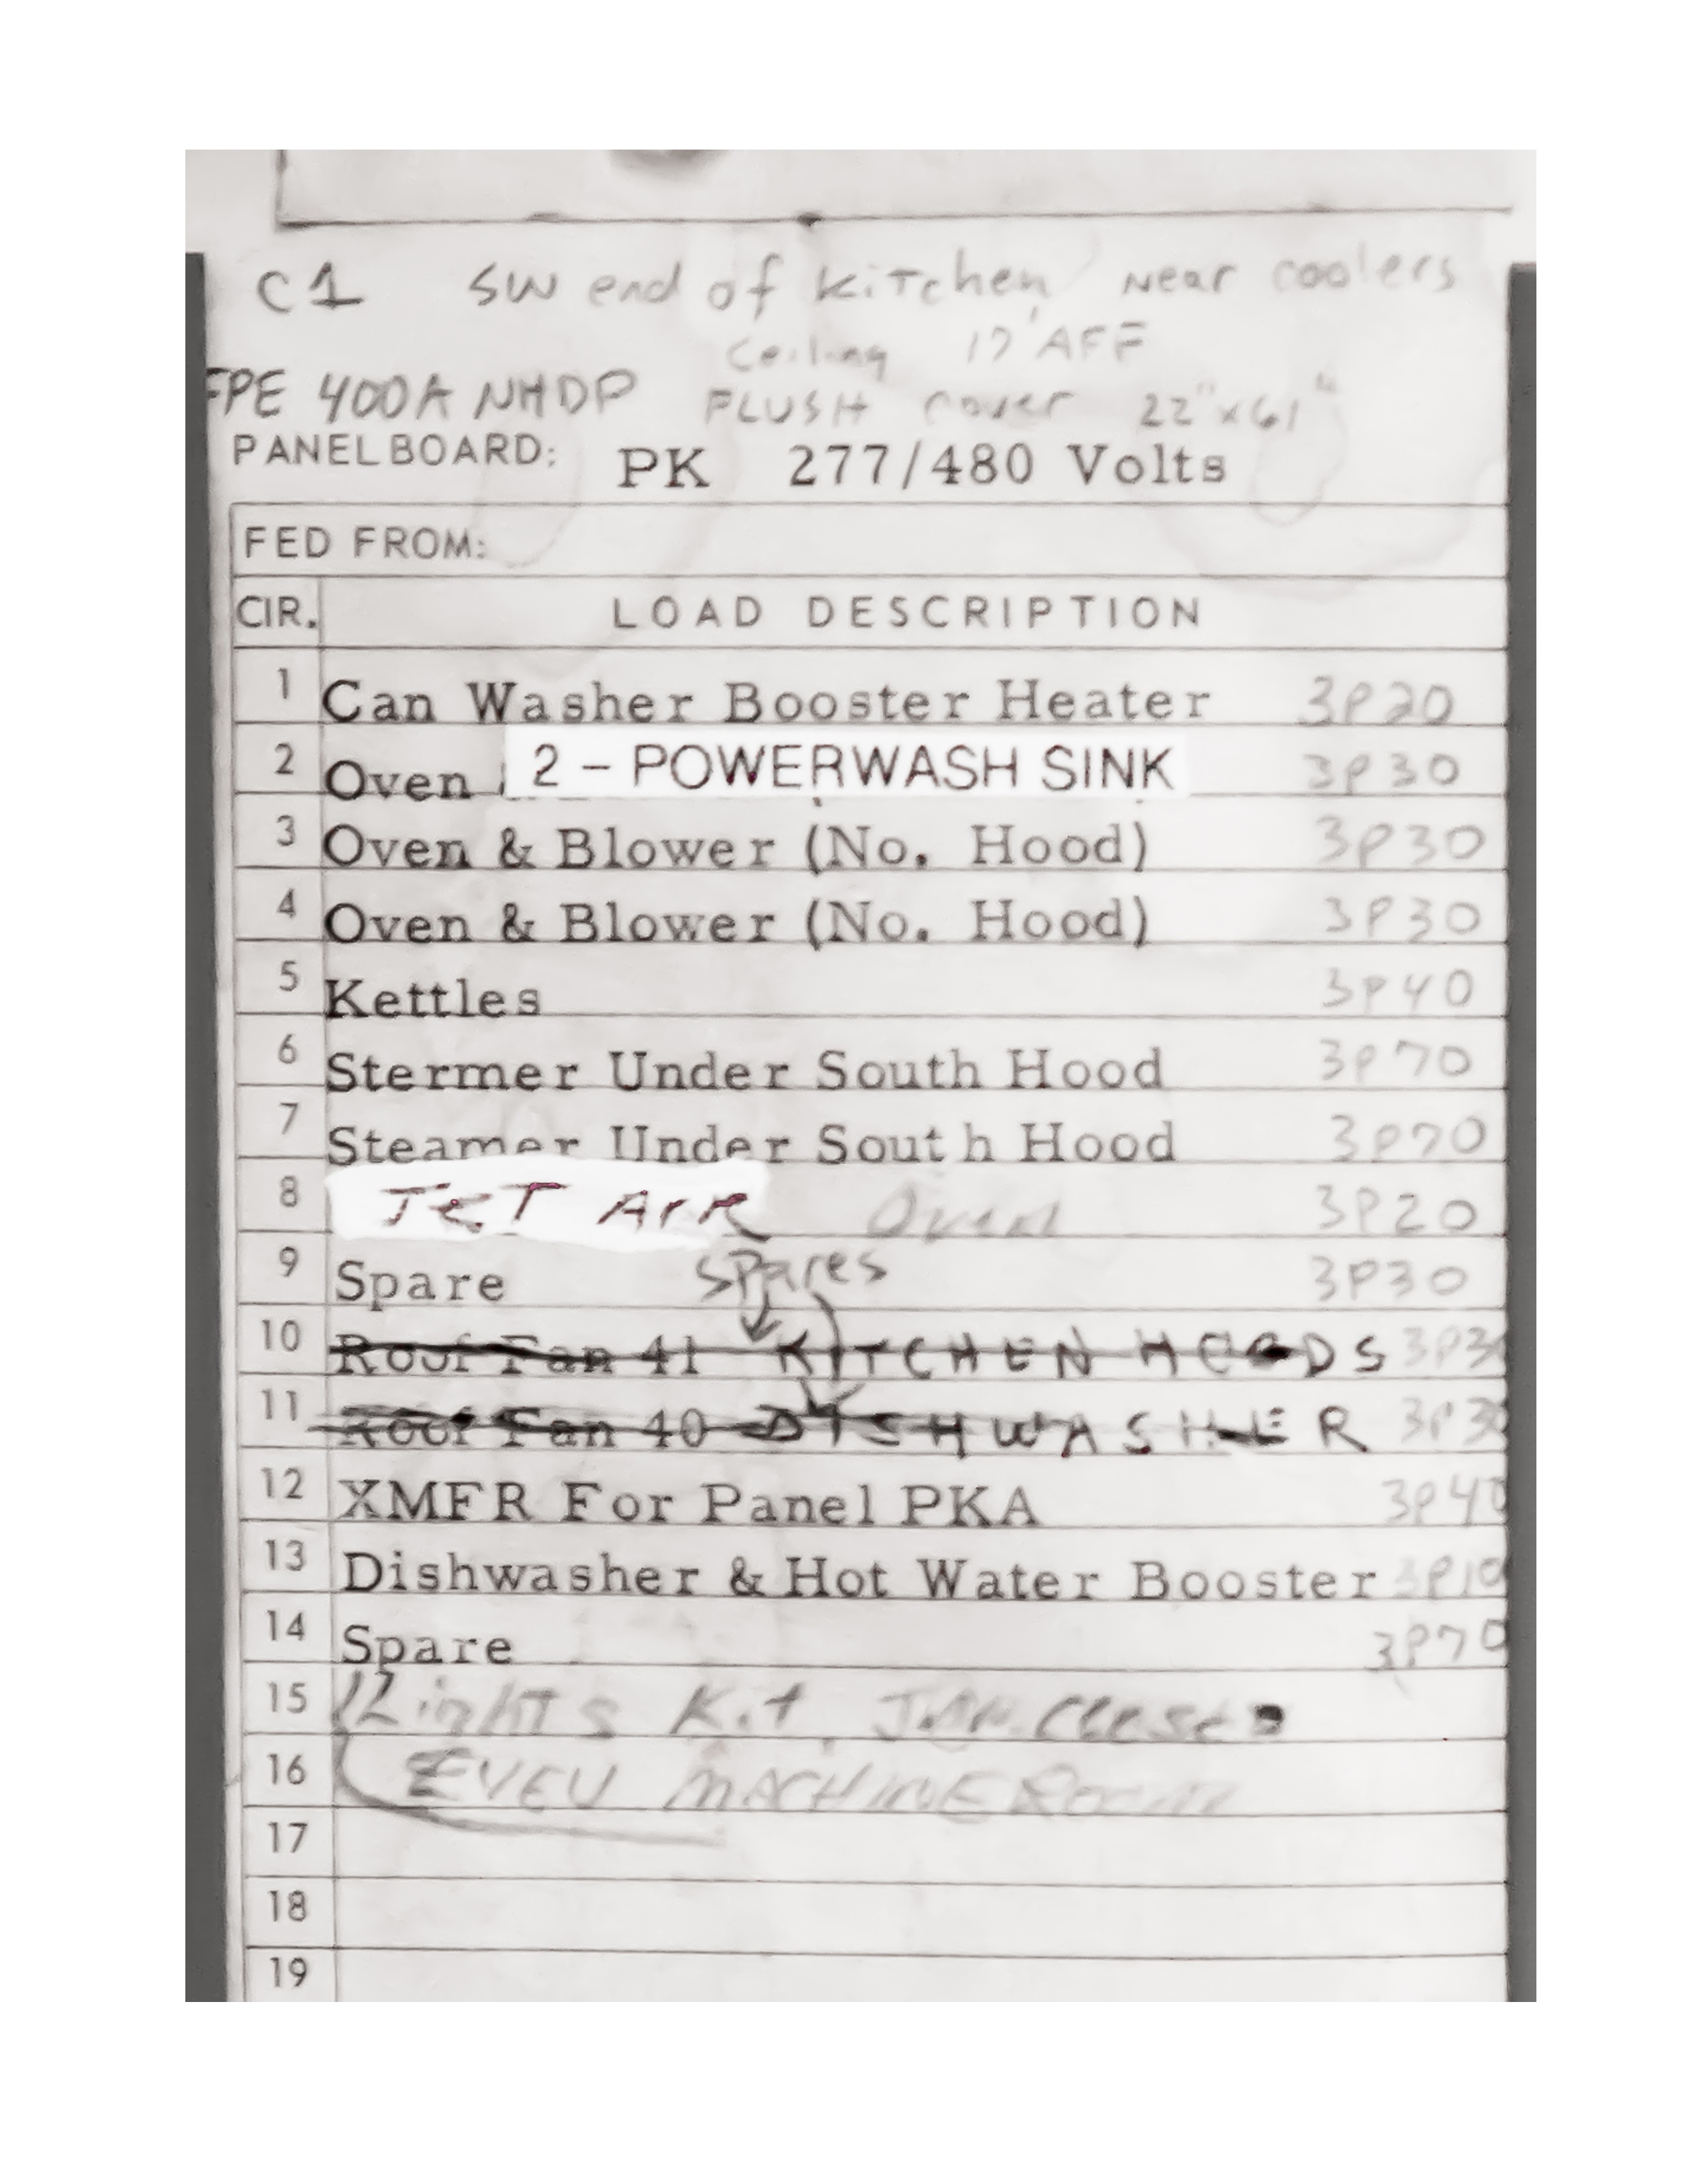 C1 SW end of Kitchen Near coolers
Ceiling 17' AFF
FPE 400A NHDP FLUSH cover 22" x 61"
PANELBOARD: PK 277/480 Volts
FED FROM:
CIR. LOAD DESCRIPTION
1 Can Washer Booster Heater 3P20
2 Oven 2 - POWERWASH SINK 3P30
3 Oven & Blower (No. Hood) 3P30
4 Oven & Blower (No. Hood) 3P30
5 Kettles 3P40
6 Stermer Under South Hood 3P70
7 Steamer Under South Hood 3P70
8 JET AIR Oven 3P20
9 Spare SPares 3P30
10 Roof Fan 41 KITCHEN HOODS 3P30
11 Roof Fan 40 DISHWASHER 3P30
12 XMFR For Panel PKA 3P40
13 Dishwasher & Hot Water Booster 3P10
14 Spare 3P70
15 LighTs Kit. Jan. Closet
16 MACHINE Room
17
18
19